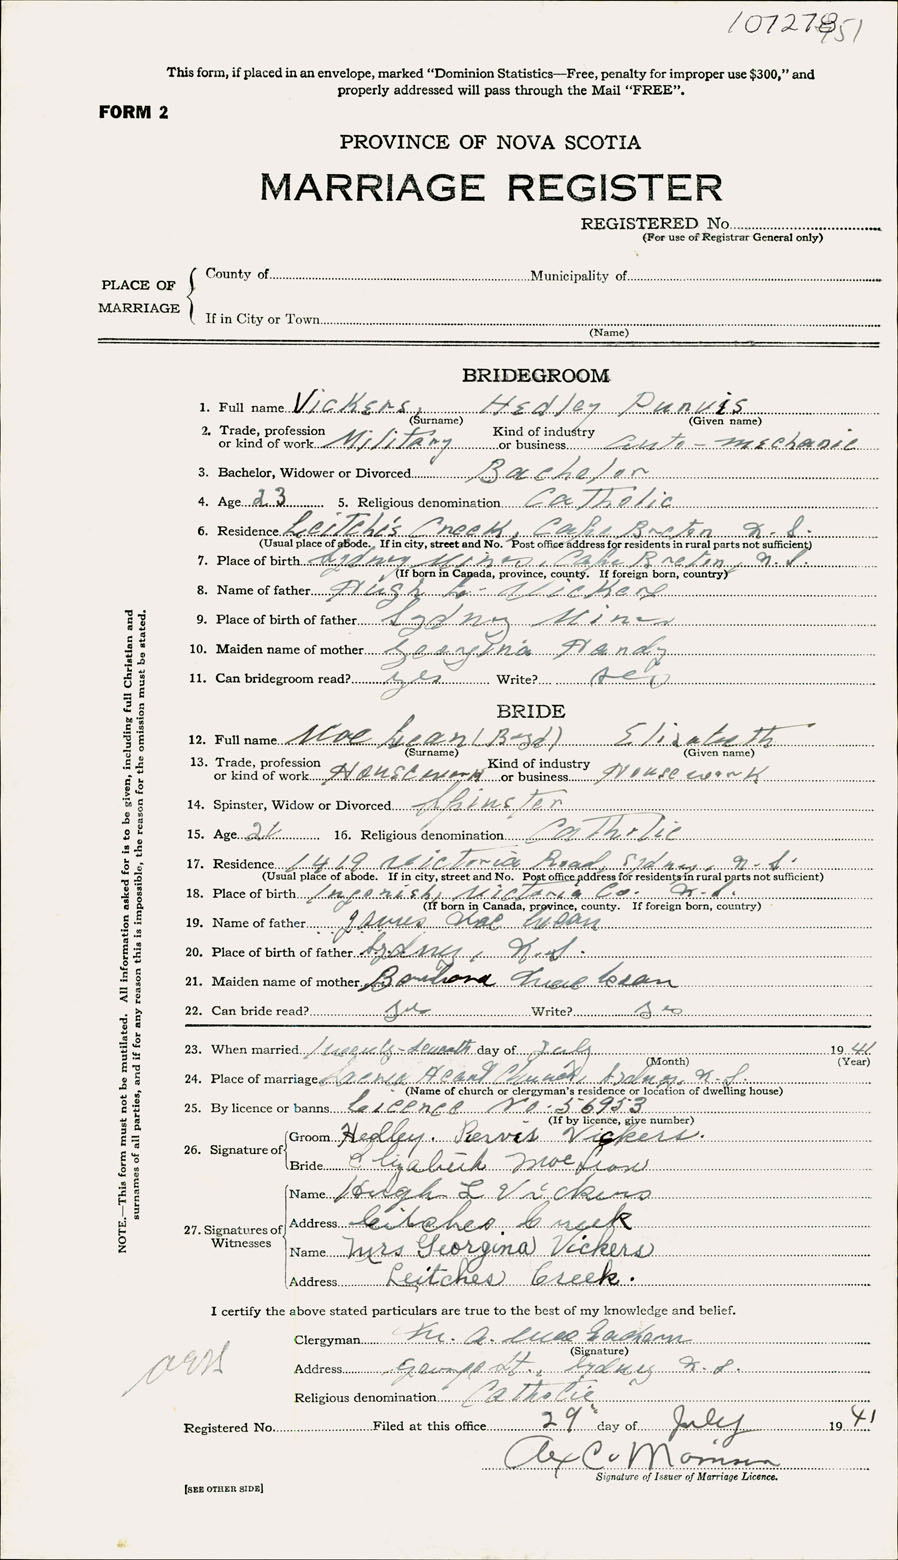 107278 951
This form, if placed in an envelope, marked "Dominion Statistics—Free, penalty for improper use $300," and
properly addressed will pass through the Mail "FREE".
FORM 2
PROVINCE OF NOVA SCOTIA
MARRIAGE REGISTER
REGISTERED No.
(For use of Registrar General only)
PLACE OF MARRIAGE
County of Municipality of
If in City or Town
(Name)
BRIDEGROOM
1. Full name Vickers, Hedley Purvis
(Surname) (Given name)
2. Trade, profession or kind of work Military Kind of industry or business auto-mechanic
3. Bachelor, Widower or Divorced Bachelor
4. Age 23 5. Religious denomination Catholic
6. Residence Leitche's Creek, Cape Breton N.S.
(Usual place of abode. If in city, street and No. Post office address for residents in rural parts not sufficient)
7. Place of birth Sydney Mines, Cape Breton, N.S.
(If born in Canada, province, county. If foreign born, country)
8. Name of father Hugh L. Vickers
9. Place of birth of father Sydney Mines
10. Maiden name of mother Georgina Handy
11. Can bridegroom read? yes Write? yes
BRIDE
12. Full name MacLean (Boyd) Elizabeth
(Surname) (Given name)
13. Trade, profession or kind of work Housework Kind of industry or business Housework
14. Spinster, Widow or Divorced Spinster
15. Age 21 16. Religious denomination Catholic
17. Residence 1419 Victoria Road, Sydney, N.S.
(Usual place of abode. If in city, street and No. Post office address for residents in rural parts not sufficient)
18. Place of birth Ingonish, Victoria Co. N.S.
(If born in Canada, province, county. If foreign born, country)
19. Name of father James MacLean
20. Place of birth of father Sydney, N.S.
21. Maiden name of mother Barbara MacLean
22. Can bride read? yes Write? yes
23. When married Twenty-seventh day of July 1941
(Month) (Year)
24. Place of marriage Sacred Heart Church, Sydney, N.S.
(Name of church or clergyman's residence or location of dwelling house)
25. By licence or banns Licence No. 56953
(If by licence, give number)
26. Signature of Groom Hedley. Pervis Vickers.
Bride Elizabeth MacLean
27. Signatures of Witnesses Name Hugh L Vickers
Address Leitches Creek
Name Mrs Georgina Vickers
Address Leitches Creek.
I certify the above stated particulars are true to the best of my knowledge and belief.
Clergyman M. A.
(Signature)
Address George St., Sydney N.S.
Religious denomination Catholic
Registered No. Filed at this office 29 day of July 1941
Alex C. Morrison
Signature of Issuer of Marriage Licence.
[SEE OTHER SIDE]
NOTE.—This form must not be mutilated. All information asked for is to be given, including full Christian and
surnames of all parties, and if for any reason this is impossible, the reason for the omission must be stated.